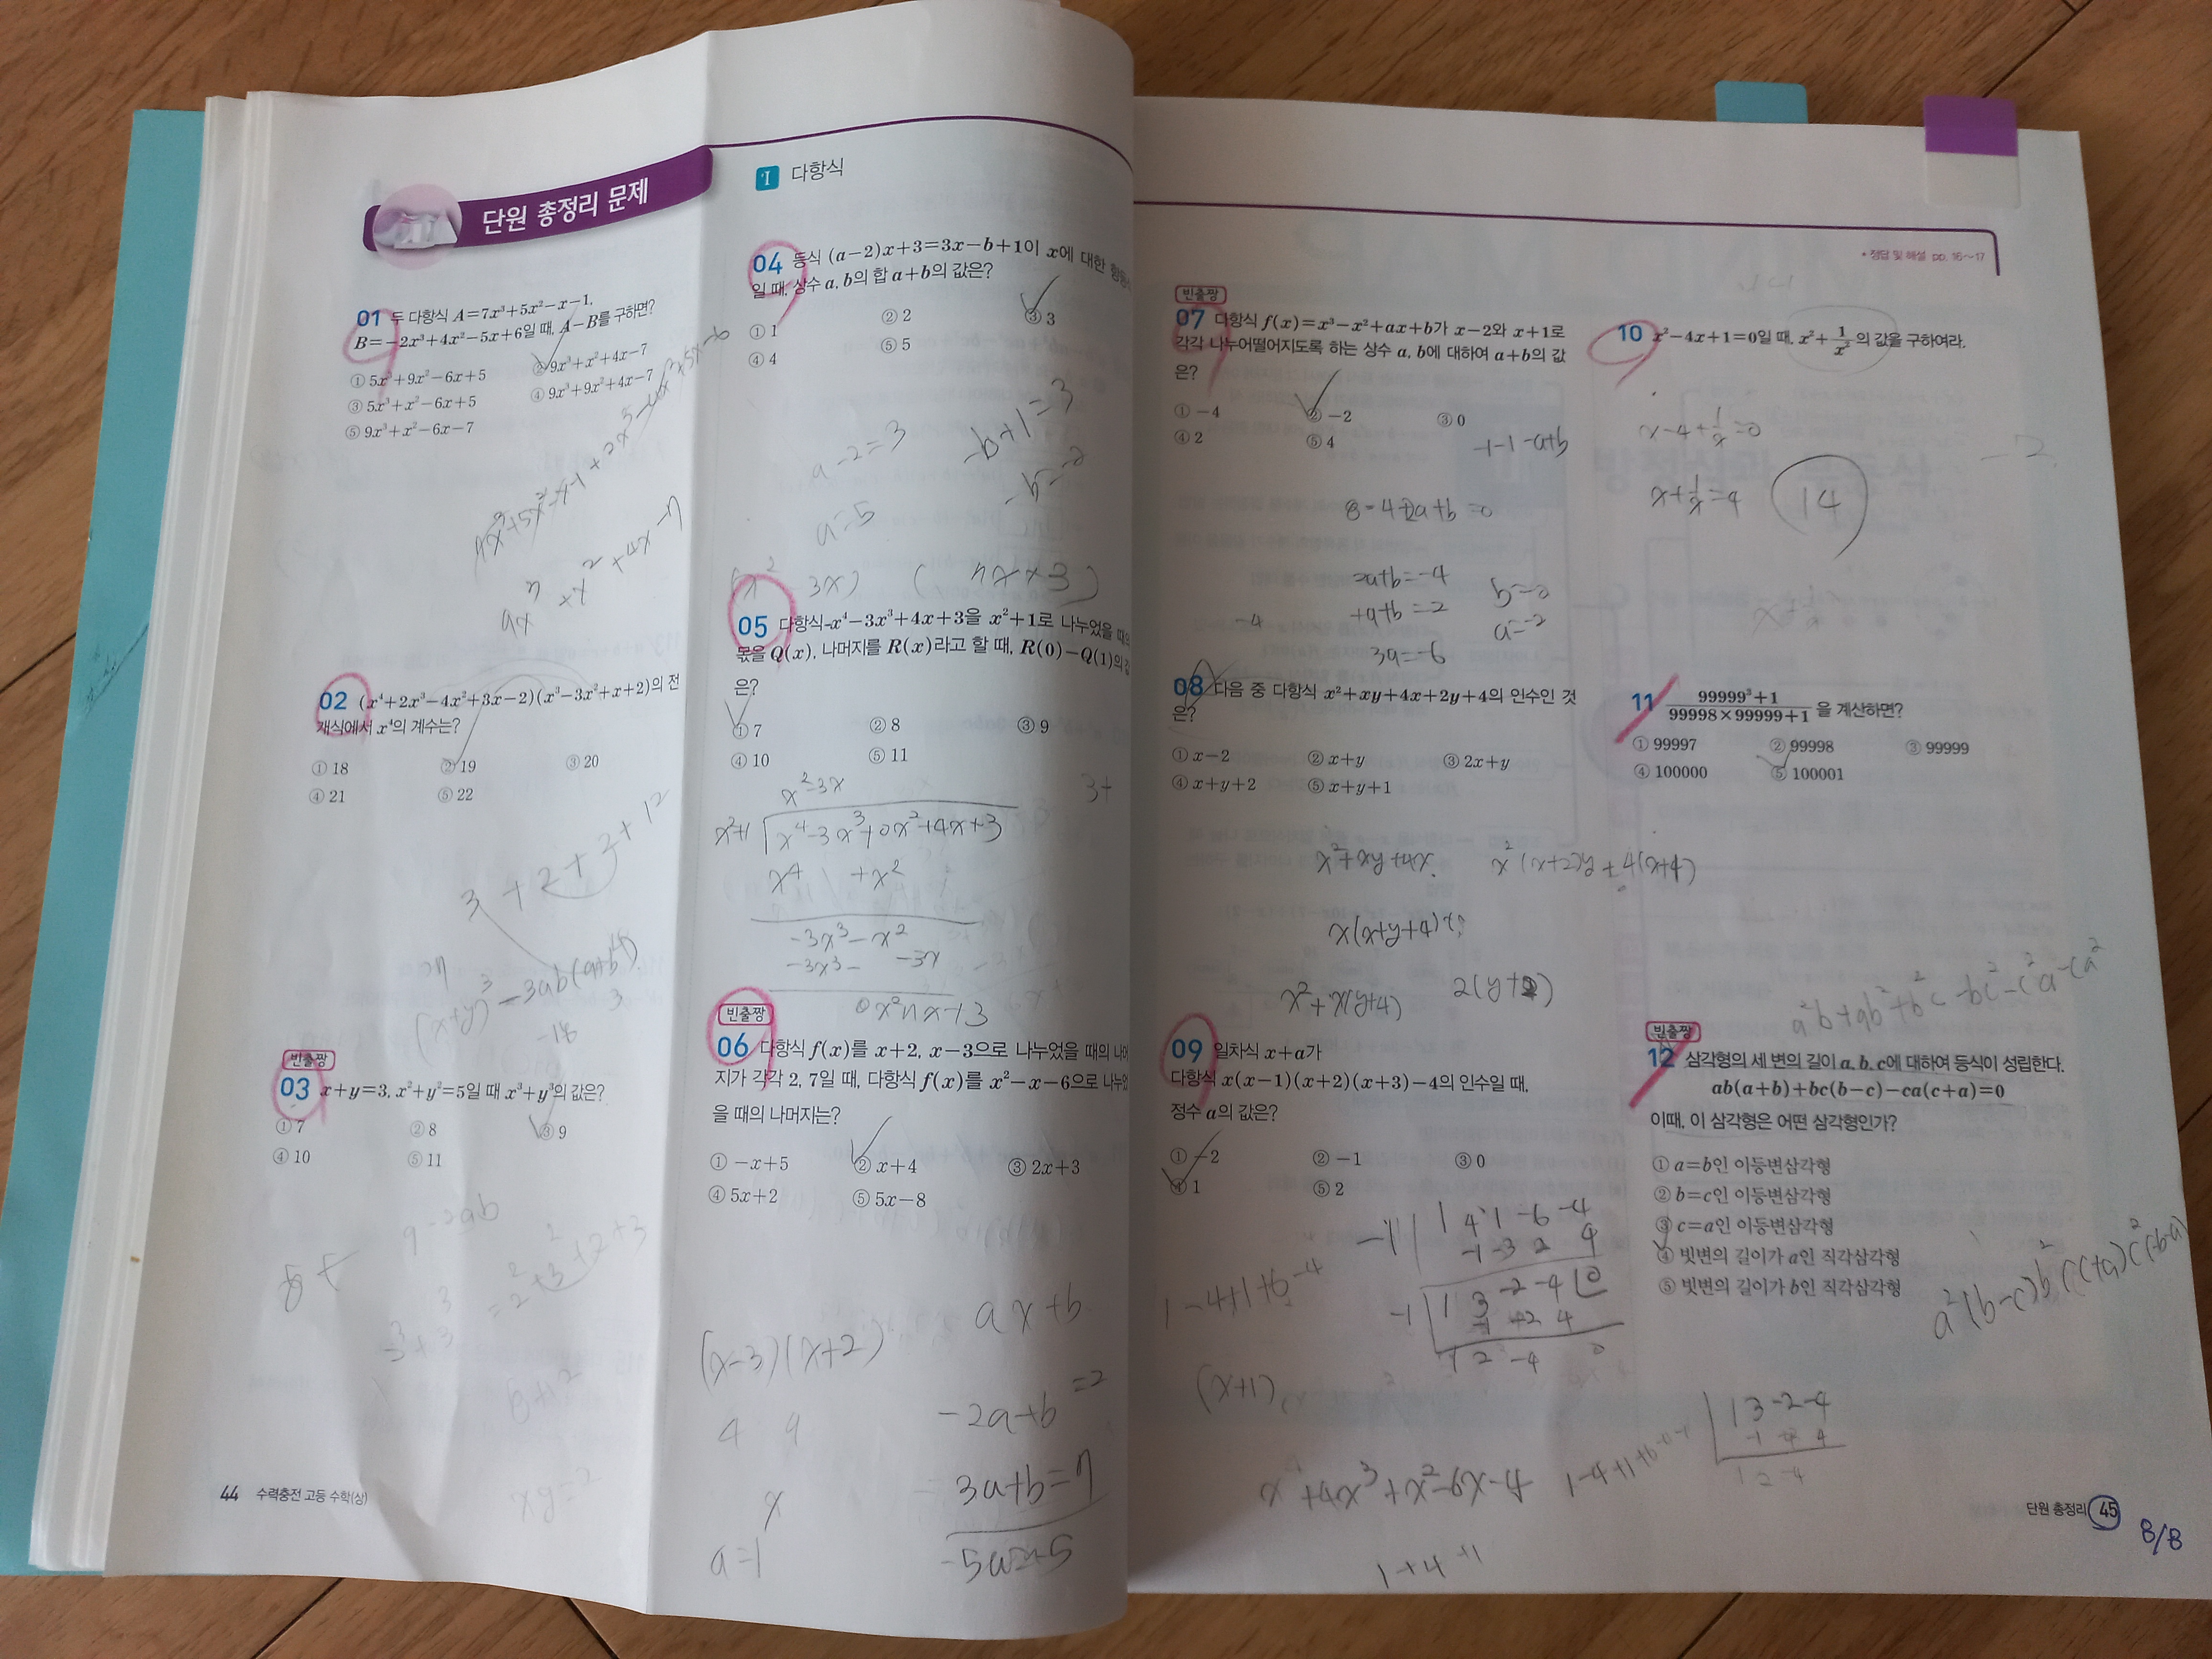 단원 총정리 문제
I 다항식
01 두 다항식 A=7x³+5x²-x-1,
B=-2x³+4x²-5x+6일 때, A-B를 구하면?
① 5x³+9x²-6x+5 ② 9x³+x²+4x-7
③ 5x³+x²-6x+5 ④ 9x³+9x²+4x-7
⑤ 9x³+x²-6x-7
02 (x⁴+2x³-4x²+3x-2)(x³-3x²+x+2)의 전
개식에서 x⁴의 계수는?
① 18 ② 19 ③ 20
④ 21 ⑤ 22
3+2+3+1
빈출짱
03 x+y=3, x²+y²=5일 때 x³+y³의 값은?
① 7 ② 8 ③ 9
④ 10 ⑤ 11
xy=2
44 수력충전 고등 수학(상)
04 등식 (a-2)x+3=3x-b+1이 x에 대한
일 때, 상수 a, b의 합 a+b의 값은?
① 1 ② 2 ③ 3
④ 4 ⑤ 5
a-2=3 -b+1=3
a=5 -b=2
05 다항식 x⁴-3x³+4x+3을 x²+1로 나누었을 때의
몫을 Q(x), 나머지를 R(x)라고 할 때, R(0)-Q(1)의
은?
① 7 ② 8 ③ 9
④ 10 ⑤ 11
x²-3x
x²+1 x⁴-3x³+0x²+4x+3
x⁴ +x²
-3x³-x²
-3x³- -3x
빈출짱
06 다항식 f(x)를 x+2, x-3으로 나누었을 때의
지가 각각 2, 7일 때, 다항식 f(x)를 x²-x-6으로
을 때의 나머지는?
① -x+5 ② x+4 ③ 2x+3
④ 5x+2 ⑤ 5x-8
ax+b
(x-3)(x+2)
-2a+b=2
3a+b=7
a=1
• 정답 및 해설 pp. 16~17
빈출짱
07 다항식 f(x)=x³-x²+ax+b가 x-2와 x+1로
각각 나누어떨어지도록 하는 상수 a, b에 대하여 a+b의 값
은?
① -4 ② -2 ③ 0
④ 2 ⑤ 4
-1-1-a+b
8-4+2a+b=0
2a+b=-4 b=0
+a+b=2 a=-2
-4
3a=-6
08 다음 중 다항식 x²+xy+4x+2y+4의 인수인 것
은?
① x-2 ② x+y ③ 2x+y
④ x+y+2 ⑤ x+y+1
x²+xy+4x x²(x+2)y+4(x+4)
x(x+y+4)
x²+x(y+4) 2(y+2)
09 일차식 x+a가
다항식 x(x-1)(x+2)(x+3)-4의 인수일 때,
정수 a의 값은?
① -2 ② -1 ③ 0
④ 1 ⑤ 2
-1 1 4 1 -6 -4
-1 -3 2 4
-1 1 3 -2 -4 0
1 2 -4 0
(x+1)
1 3 -2 -4
1 2 -4
10 x²-4x+1=0일 때, x²+1/x²의 값을 구하여라.
x-4+1/x=0
x+1/x=4 14
11 (99999³+1)/(99998×99999+1) 을 계산하면?
① 99997 ② 99998 ③ 99999
④ 100000 ⑤ 100001
a²b+ab²+b²c-bc²-c²a-ca²
빈출짱
12 삼각형의 세 변의 길이 a, b, c에 대하여 등식이 성립한다.
ab(a+b)+bc(b-c)-ca(c+a)=0
이때, 이 삼각형은 어떤 삼각형인가?
① a=b인 이등변삼각형
② b=c인 이등변삼각형
③ c=a인 이등변삼각형
④ 빗변의 길이가 a인 직각삼각형
⑤ 빗변의 길이가 b인 직각삼각형
단원 총정리 45
8/8